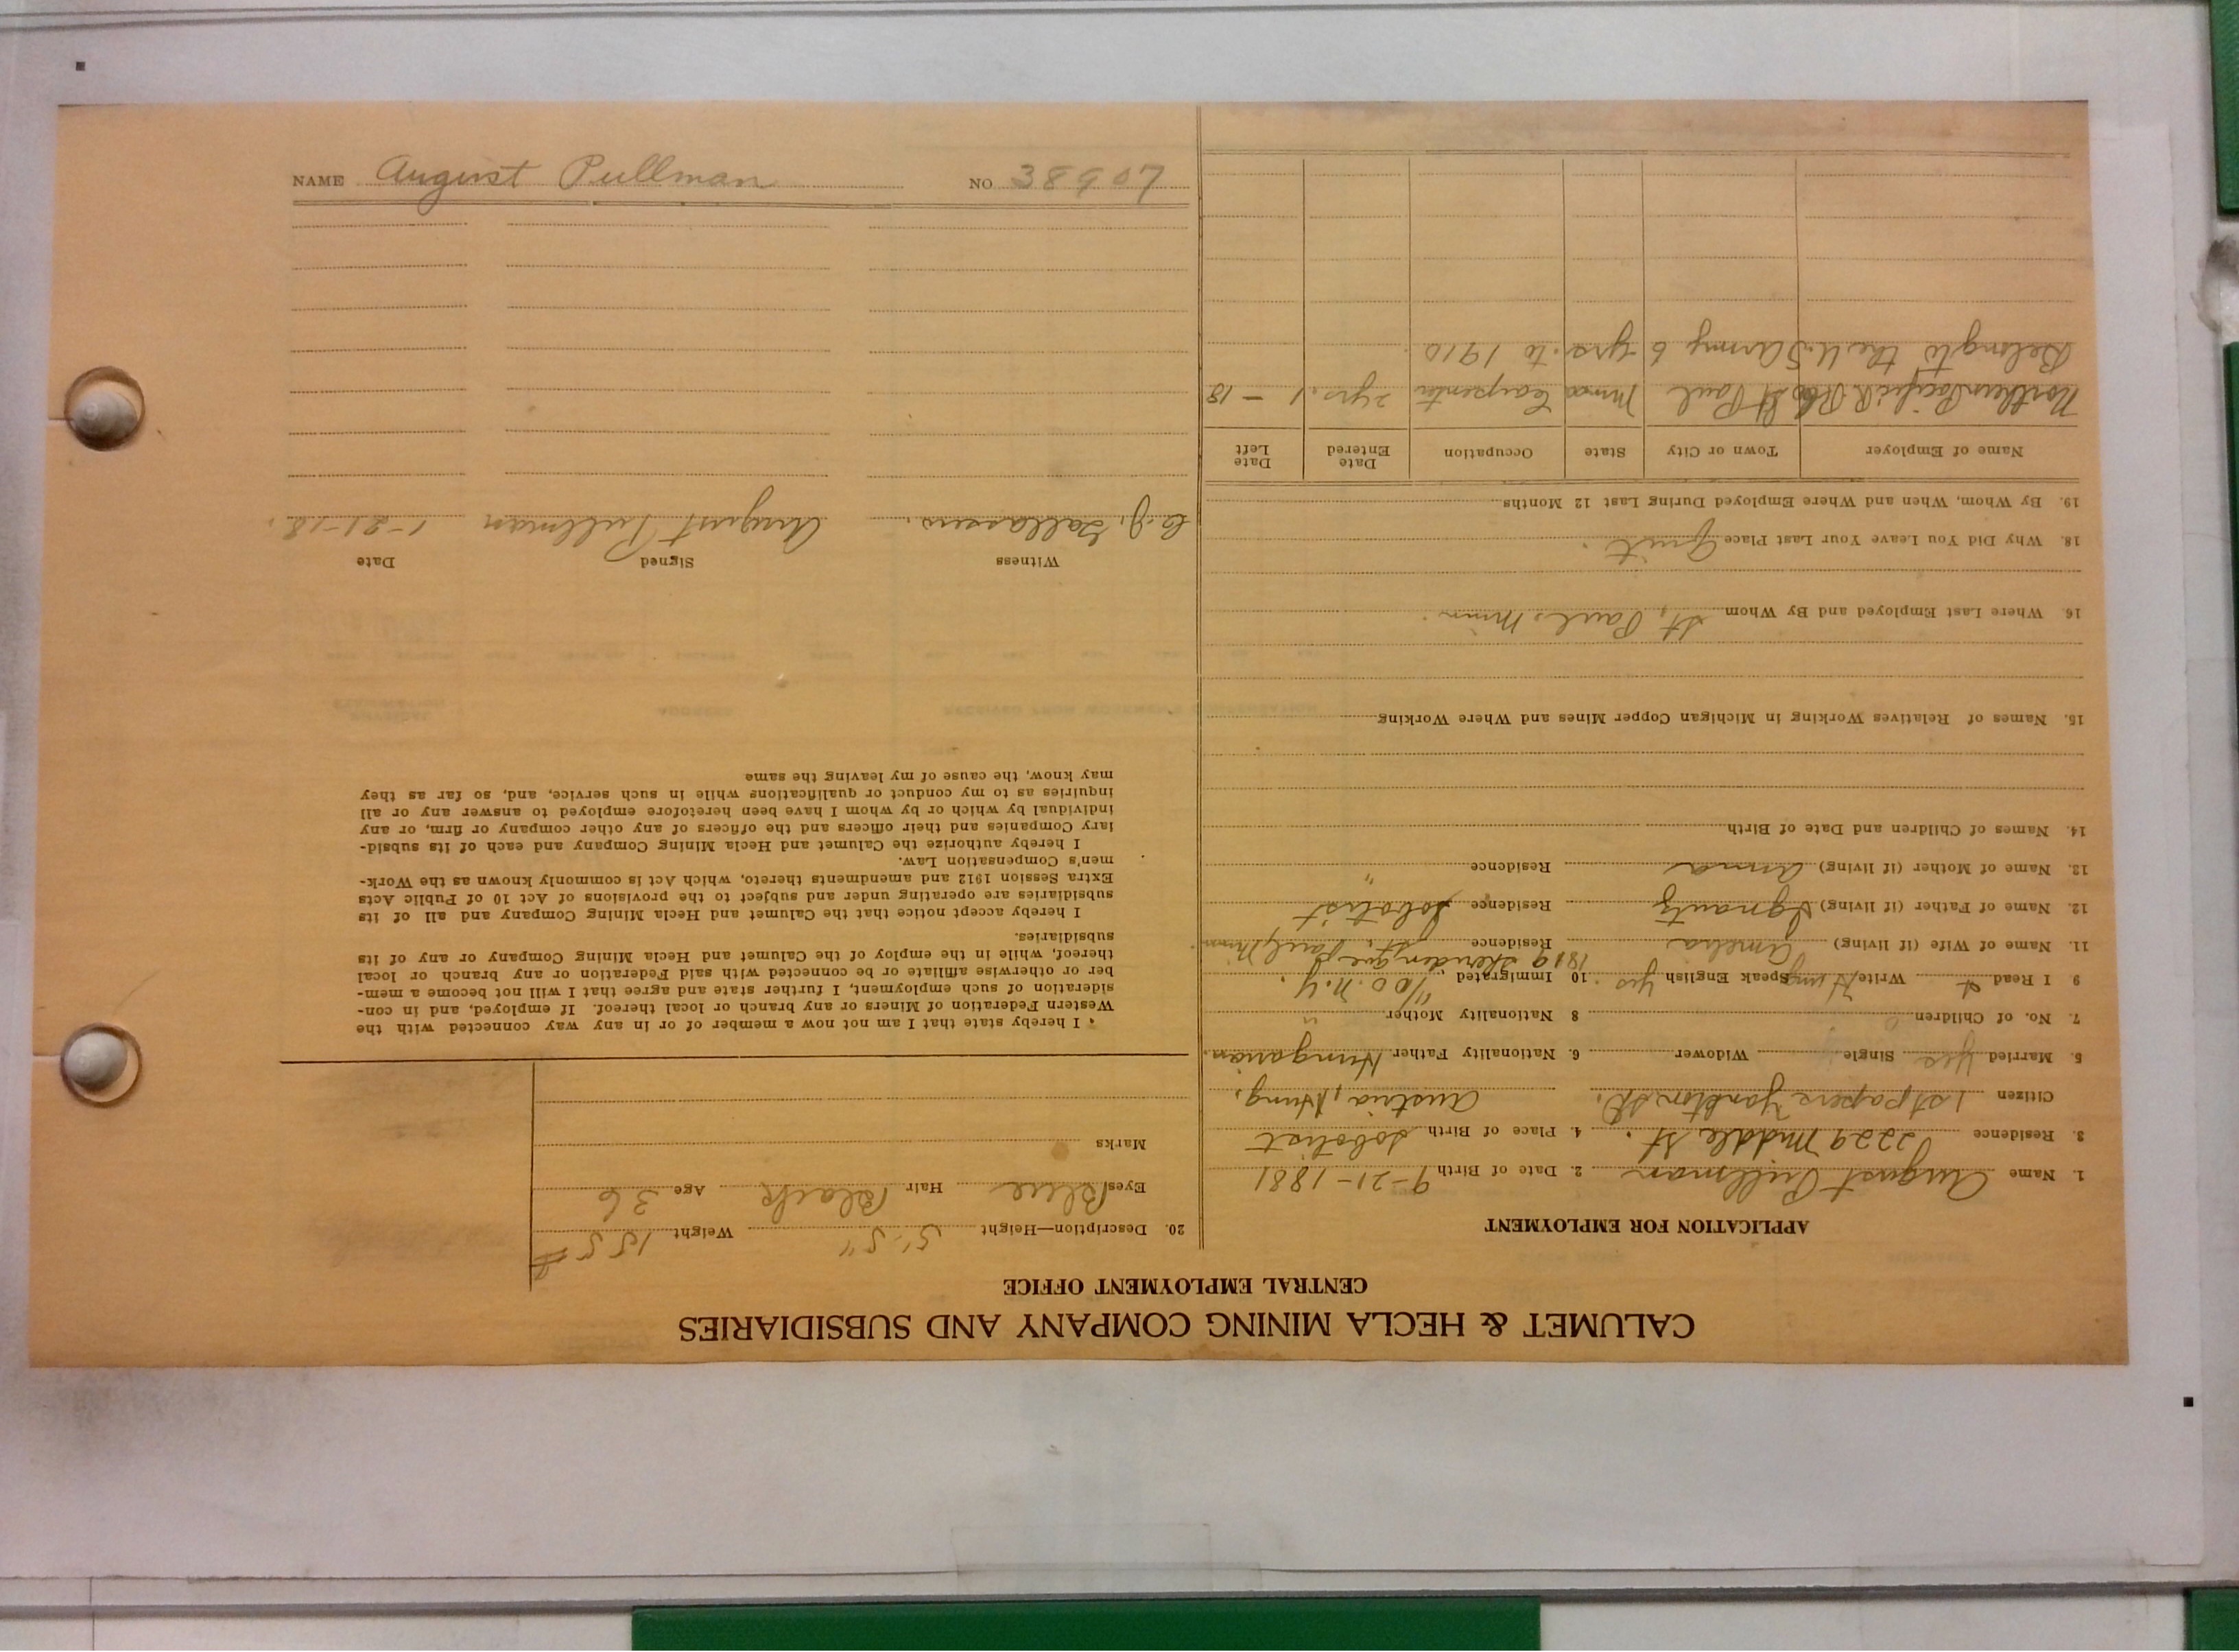 CALUMET & HECLA MINING COMPANY AND SUBSIDIARIES
CENTRAL EMPLOYMENT OFFICE
APPLICATION FOR EMPLOYMENT
1. Name August Pullman 2. Date of Birth 9-21-1881
3. Residence 2229 Middle St. 4. Place of Birth Sobotist
Citizen 1st papers Yankton SD. Austria, Hung.
5. Married Yes Single Widower 6. Nationality Father Hungarian.
7. No. of Children 8 Nationality Mother "
9 I Read & Write Hung Speak English yes. 10 Immigrated "/00. N.Y.
1819 ave
11. Name of Wife (if living) Amelia Residence St. Paul, Minn
12. Name of Father (if living) Ignautz Residence Sobotist
13. Name of Mother (if living) Anna Residence "
14. Names of Children and Date of Birth
15. Names of Relatives Working in Michigan Copper Mines and Where Working
16. Where Last Employed and By Whom St. Paul, Minn.
18. Why Did You Leave Your Last Place Quit.
19. By Whom, When and Where Employed During Last 12 Months
Name of Employer Town or City State Occupation Date Entered Date Left
Northern Pacific R. R. Co St Paul Minn Carpenter 2yrs. 1 - 18
Belong to the U.S Army 6 yrs. to 1910
20. Description—Height 5'-5" Weight 155#
Eyes Blue Hair Black Age 36
Marks
I hereby state that I am not now a member of or in any way connected with the
Western Federation of Miners or any branch or local thereof. If employed, and in con-
sideration of such employment, I further state and agree that I will not become a mem-
ber or otherwise affiliate or be connected with said Federation or any branch or local
thereof, while in the employ of the Calumet and Hecla Mining Company or any of its
subsidiaries.
I hereby accept notice that the Calumet and Hecla Mining Company and all of its
subsidiaries are operating under and subject to the provisions of Act 10 of Public Acts
Extra Session 1912 and amendments thereto, which Act is commonly known as the Work-
men's Compensation Law.
I hereby authorize the Calumet and Hecla Mining Company and each of its subsid-
iary Companies and their officers and the officers of any other company or firm, or any
individual by which or by whom I have been heretofore employed to answer any or all
inquiries as to my conduct or qualifications while in such service, and, so far as they
may know, the cause of my leaving the same
Witness Signed Date
August Pullman 1-21-18.
NAME August Pullman NO 38907